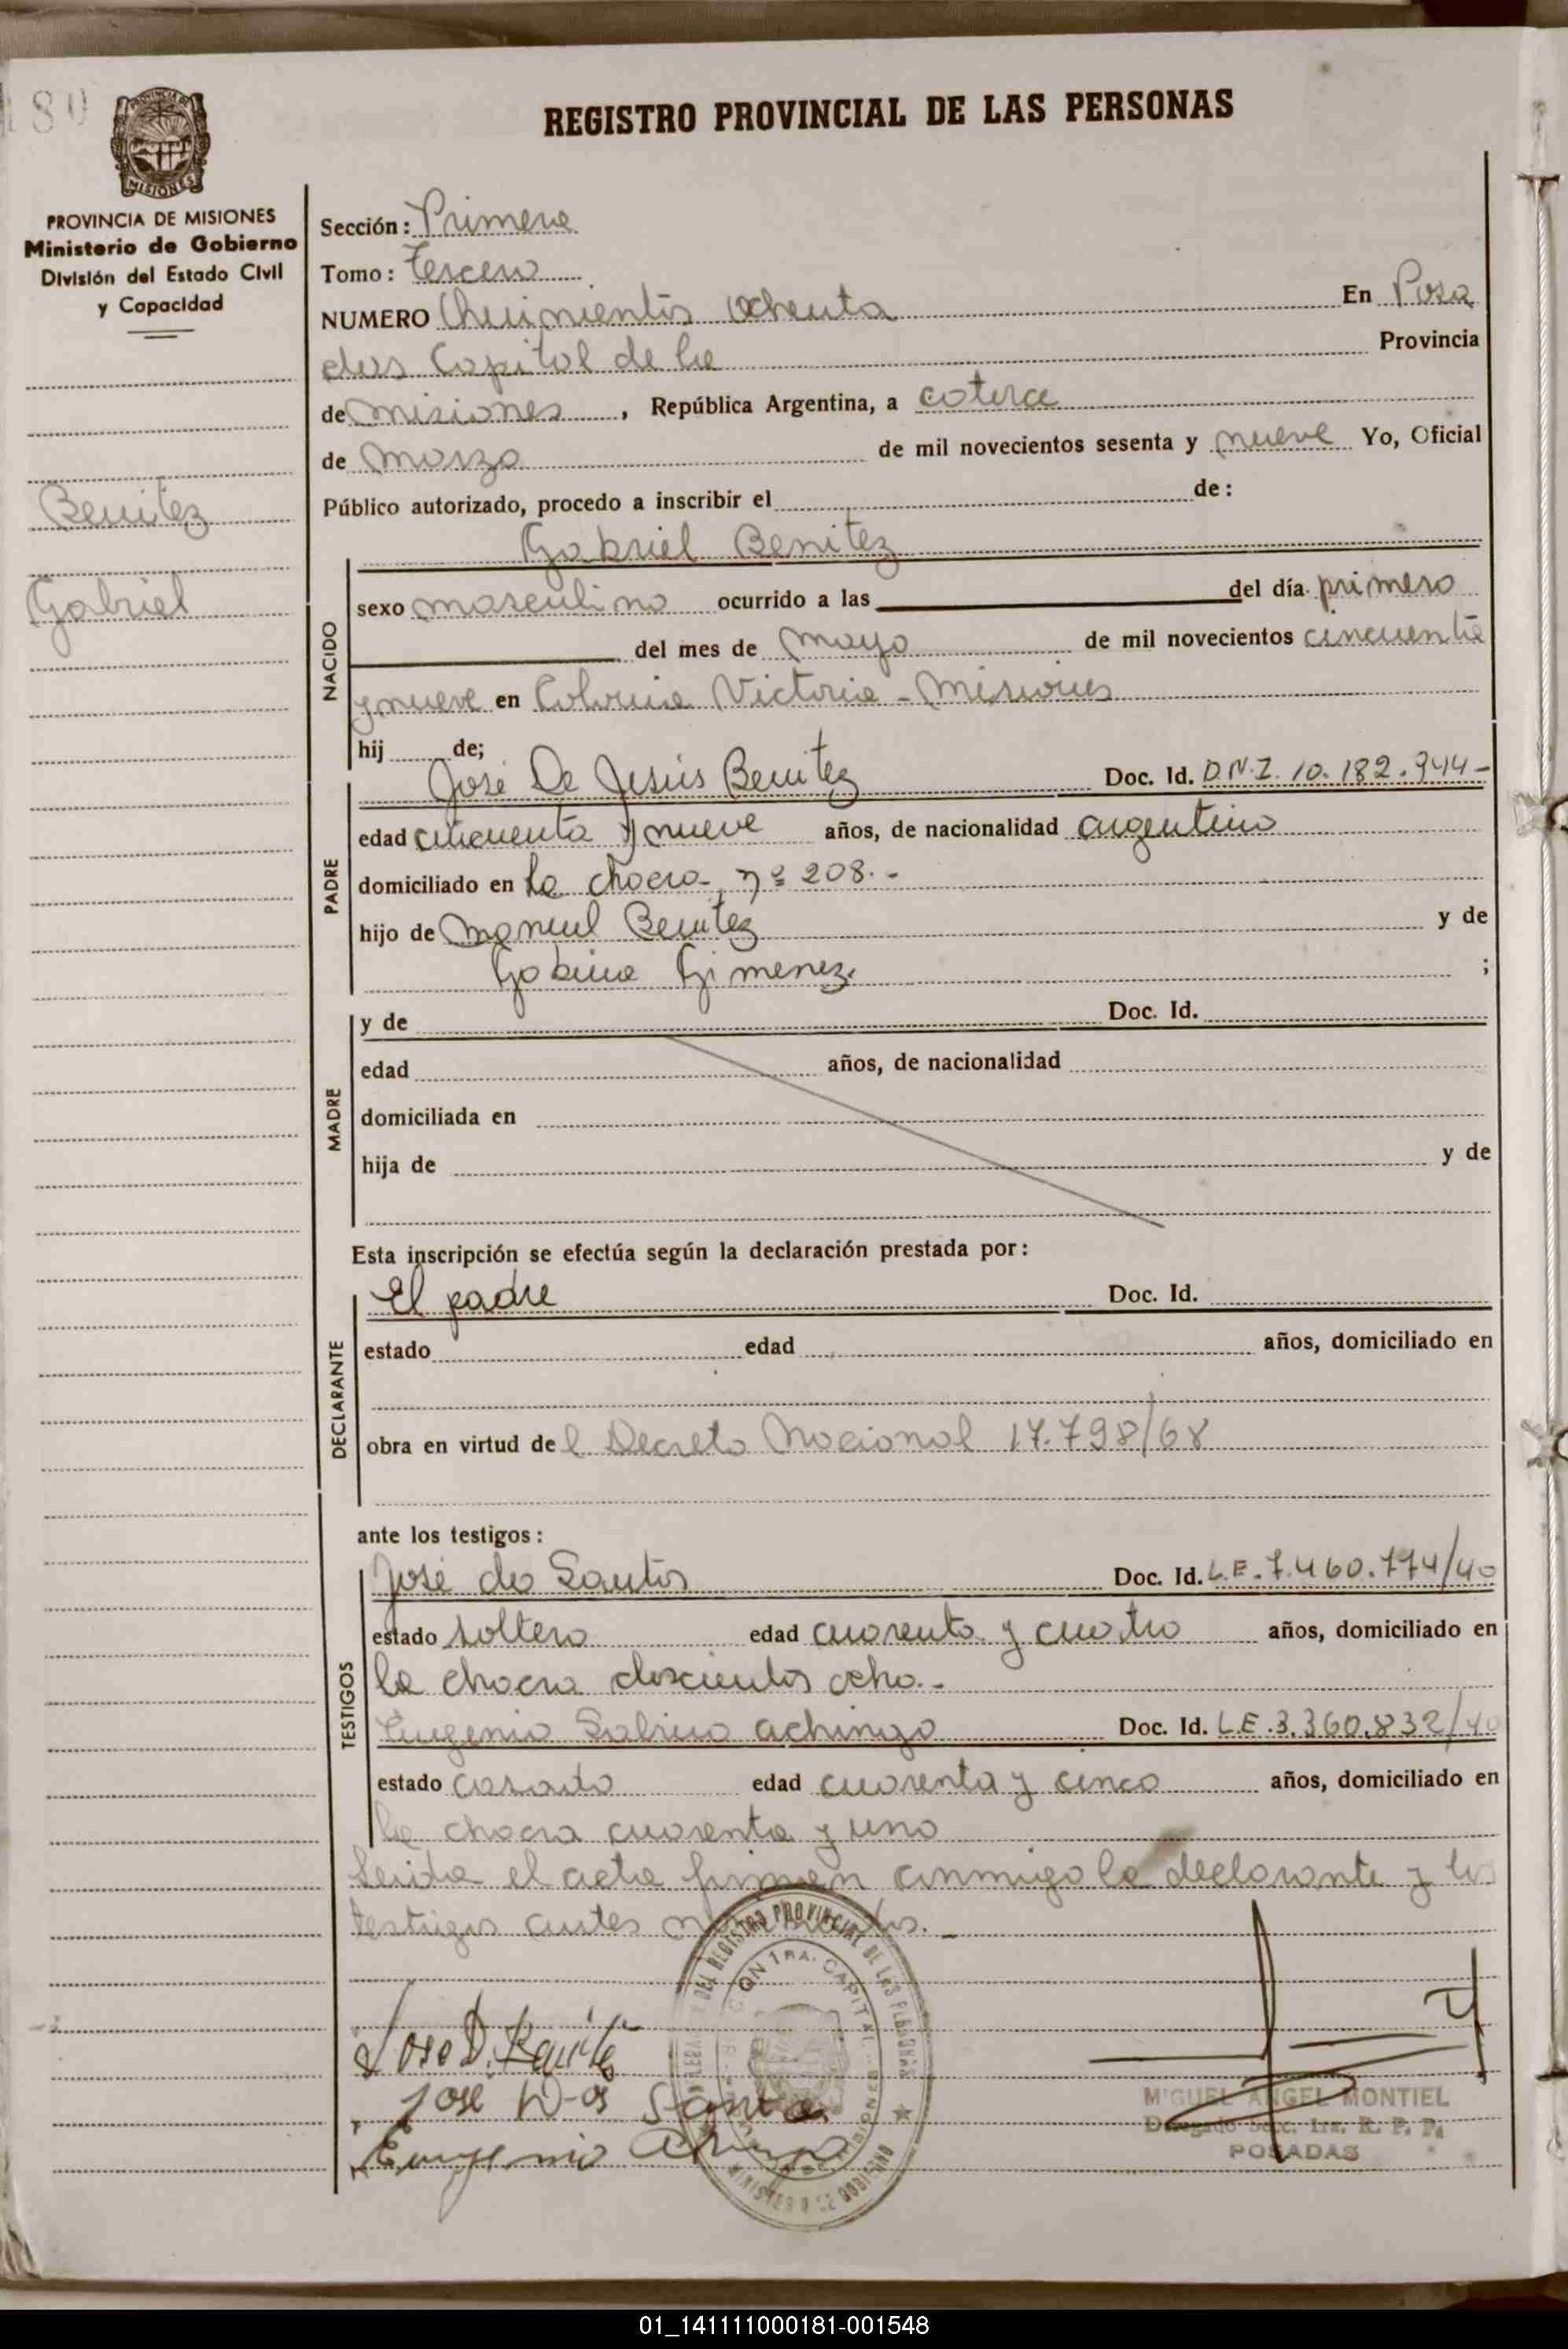 180
PROVINCIA DE MISIONES
PROVINCIA DE MISIONES
Ministerio de Gobierno
División del Estado Civil
y Capacidad
Benitez
Gabriel
REGISTRO PROVINCIAL DE LAS PERSONAS
Sección: Primera
Tomo: Tercero
NUMERO Quinientos ochenta En Posa
das Capital de la Provincia
de Misiones, República Argentina, a catorce
de Marzo de mil novecientos sesenta y nueve Yo, Oficial
Público autorizado, procedo a inscribir el de:
Gabriel Benitez
NACIDO
sexo masculino ocurrido a las del día primero
del mes de mayo de mil novecientos cincuenta
y nueve en Colonia Victoria - Misiones
hij de;
PADRE
José De Jesús Benitez Doc. Id. D.N.I. 10.182.944-
edad cincuenta y nueve años, de nacionalidad argentino
domiciliado en la chacra nº 208.-
hijo de Manuel Benitez y de
Gabina Gimenez. ;
MADRE
y de Doc. Id.
edad años, de nacionalidad
domiciliada en
hija de y de
Esta inscripción se efectúa según la declaración prestada por:
DECLARANTE
El padre Doc. Id.
estado edad años, domiciliado en
obra en virtud del Decreto Nacional 17.798/68
ante los testigos:
TESTIGOS
José do Santos Doc. Id. L.E. 7.460.774/40
estado soltero edad cuarenta y cuatro años, domiciliado en
la chacra doscientos ocho.-
Eugenio Achingo Doc. Id. L.E. 3.360.832/40
estado casado edad cuarenta y cinco años, domiciliado en
la chacra cuarenta y uno
Leida el acta firman conmigo la declarante y los
testigos antes mencionados.-
Jose D. Benitez
José D-os Santo
Eugenio
DEL REGISTRO PROVINCIAL DE LAS PERSONAS
1RA. CAPITAL
MISIONES
MINISTERIO DE GOBIERNO
MIGUEL ANGEL MONTIEL
Delegado Secc. 1ra. R. P. P.
POSADAS
01_141111000181-001548